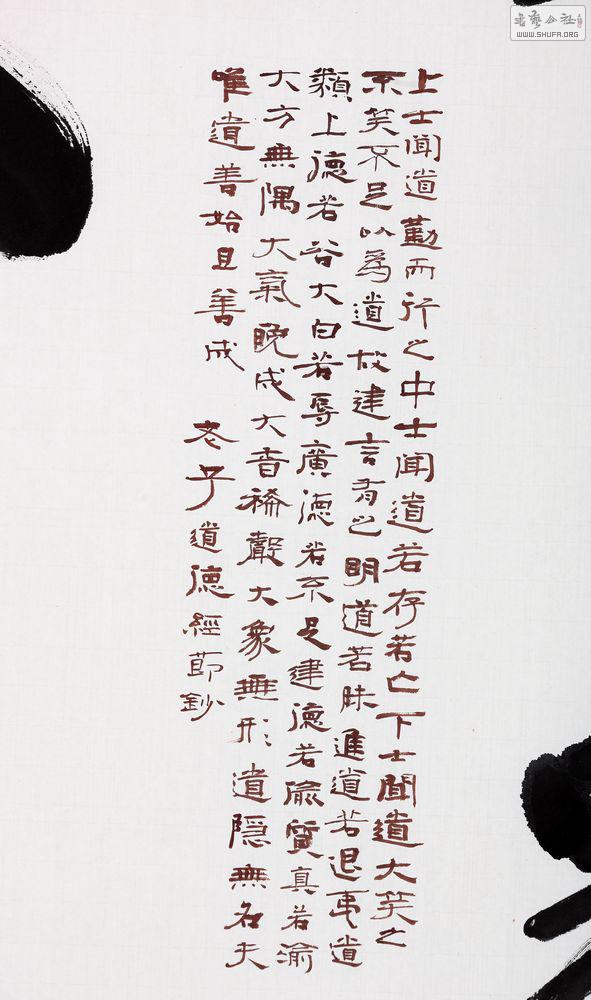 書藝公社
WWW.SHUFA.ORG
上士聞道勤而行之中士聞道若存若亡下士聞道大笑之
不笑不足以為道故建言有之明道若昧進道若退夷道
類上德若谷大白若辱廣德若不足建德若偷質真若渝
大方無隅大氣晚成大音稀聲大象無形道隱無名夫
唯道善始且善成 老子道德經節鈔